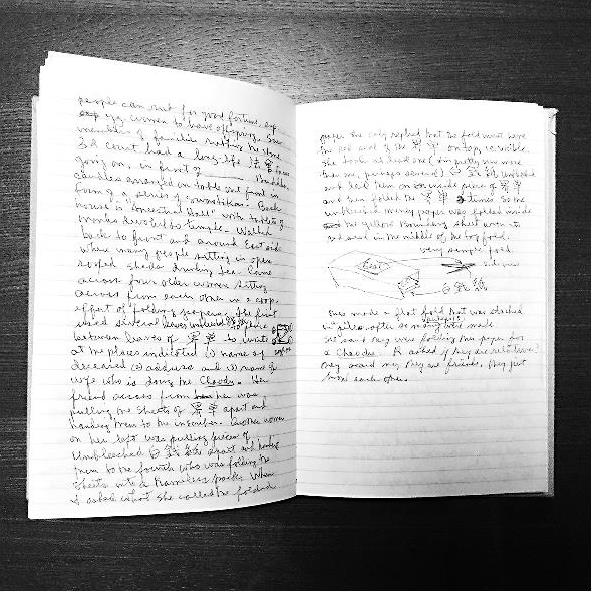 people can visit for good fortune, esp
esp yg women to have offspring. Saw
members of families
3d count had a long-life 法會
going on, in front of ______ Buddha,
candles arranged on table out front in
form of a series of swastikas. Back
house is "Ancestral Hall" with tablets of
monks devoted to temple. Walked
back to front and around East side
where many people sitting in open
roofed sheds drinking tea. Came
across four older women sitting
across from each other in a coop
effort of folding joss papers. The first
used several
between leaves of 黃單 to write
at the places indicated (1) name of
deceased (2) address and (3) name of
wife who is doing the Chaodu. Her
friend across from her was
pulling the sheets of 黃單 apart and
handing them to the inscriber. Another woman
on her left was pulling pieces of
unbleached 白錢紙 apart and handing
them to the fourth who was folding the
sheets into a nameless packet. When
I asked what she called the folded
paper she only replied that the fold must have
the red seal of the 黃單 on top, visible.
She took at least one (I'm pretty sure more
than one, perhaps several) 白錢紙 unbleached
and laid them on inside piece of 黃單
and then folded the 黃單 3 times so the
unbleached money paper was folded inside
the yellow Boundary Sheet were
red seal in the middle of the top fold.
very simple fold
Seal
白錢紙
Ones made a flat fold that was stacked
in piles after so many were made
She said they were folding this paper for
a Chaodu. I asked if they are relatives?
They said no, they are friends, they just
know each other.